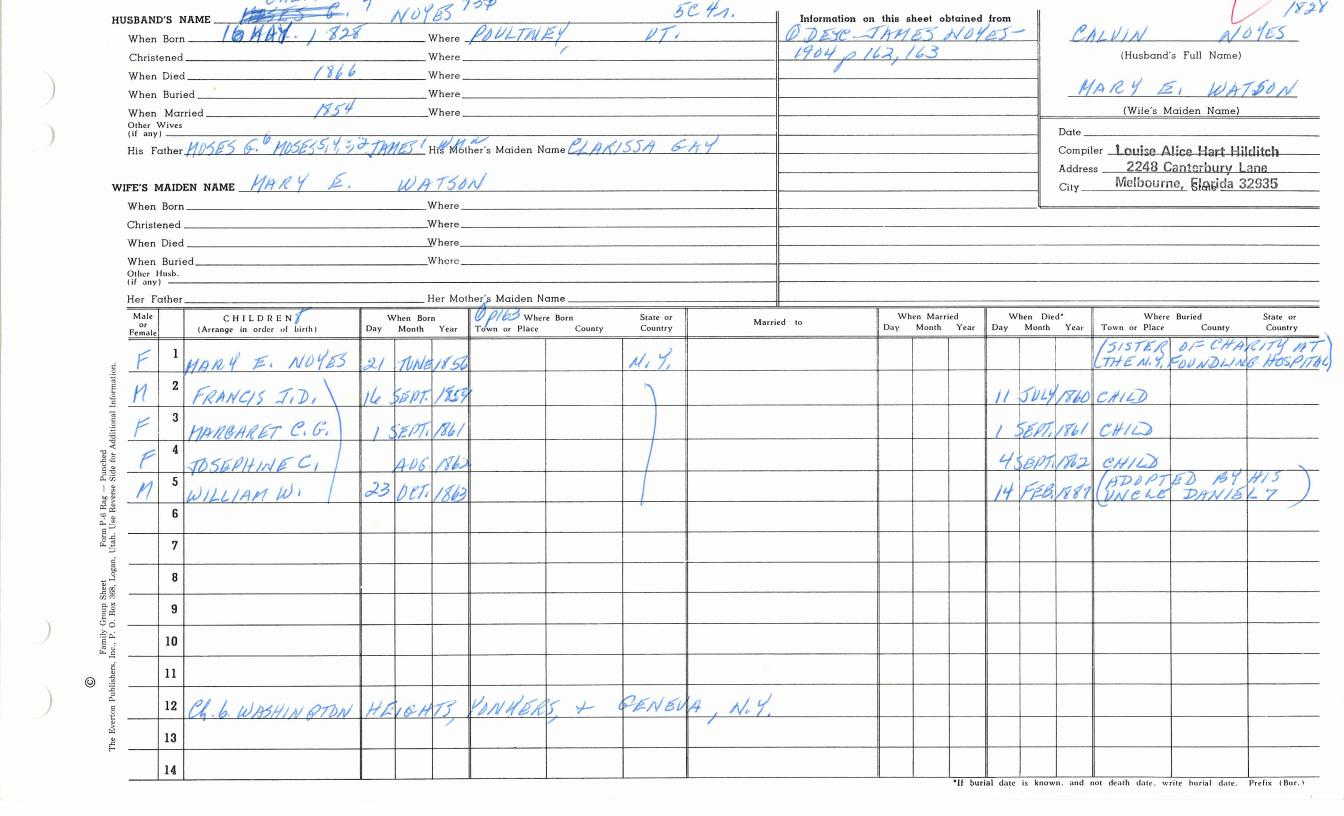 HUSBAND'S NAME NOYES
1828
When Born 16 MAY, 1828 Where POULTNEY, VT.
Christened Where
When Died 1866 Where
When Buried Where
When Married 1854 Where
Other Wives
(if any)
His Father MOSES G.6 MOSES JAMES1 His Mother's Maiden Name CLARISSA GAY
WIFE'S MAIDEN NAME MARY E. WATSON
When Born Where
Christened Where
When Died Where
When Buried Where
Other Husb.
(if any)
Her Father Her Mother's Maiden Name
Information on this sheet obtained from
① DESC- JAMES NOYES-
1904 p 162, 163
CALVIN NOYES
(Husband's Full Name)
MARY E. WATSON
(Wife's Maiden Name)
Date
Compiler Louise Alice Hart Hilditch
Address 2248 Canterbury Lane
City Melbourne, Florida 32935
State
Male or Female
CHILDREN
(Arrange in order of birth)
When Born
Day Month Year
① p163 Where Born
Town or Place County State or Country
Married to
When Married
Day Month Year
When Died*
Day Month Year
Where Buried
Town or Place County State or Country
F 1 MARY E. NOYES 21 JUNE 1856 N.Y. (SISTER OF CHARITY AT THE N.Y. FOUNDLING HOSPITAL)
M 2 FRANCIS J.D. 16 SEPT. 1859 11 JULY 1860 CHILD
F 3 MARGARET C.G. 1 SEPT. 1861 1 SEPT. 1861 CHILD
F 4 JOSEPHINE C. AUG 1862 4 SEPT. 1862 CHILD
M 5 WILLIAM W. 23 OCT. 1863 14 FEB. 1887 (ADOPTED BY HIS UNCLE DANIEL7)
6
7
8
9
10
11
12 Ch. b. WASHINGTON HEIGHTS, YONKERS, + GENEVA, N.Y.
13
14
*If burial date is known, and not death date, write burial date. Prefix (Bur.)
Family Group Sheet Form P-6 Rag — Punched
© The Everton Publishers, Inc., P. O. Box 368, Logan, Utah. Use Reverse Side for Additional Information.